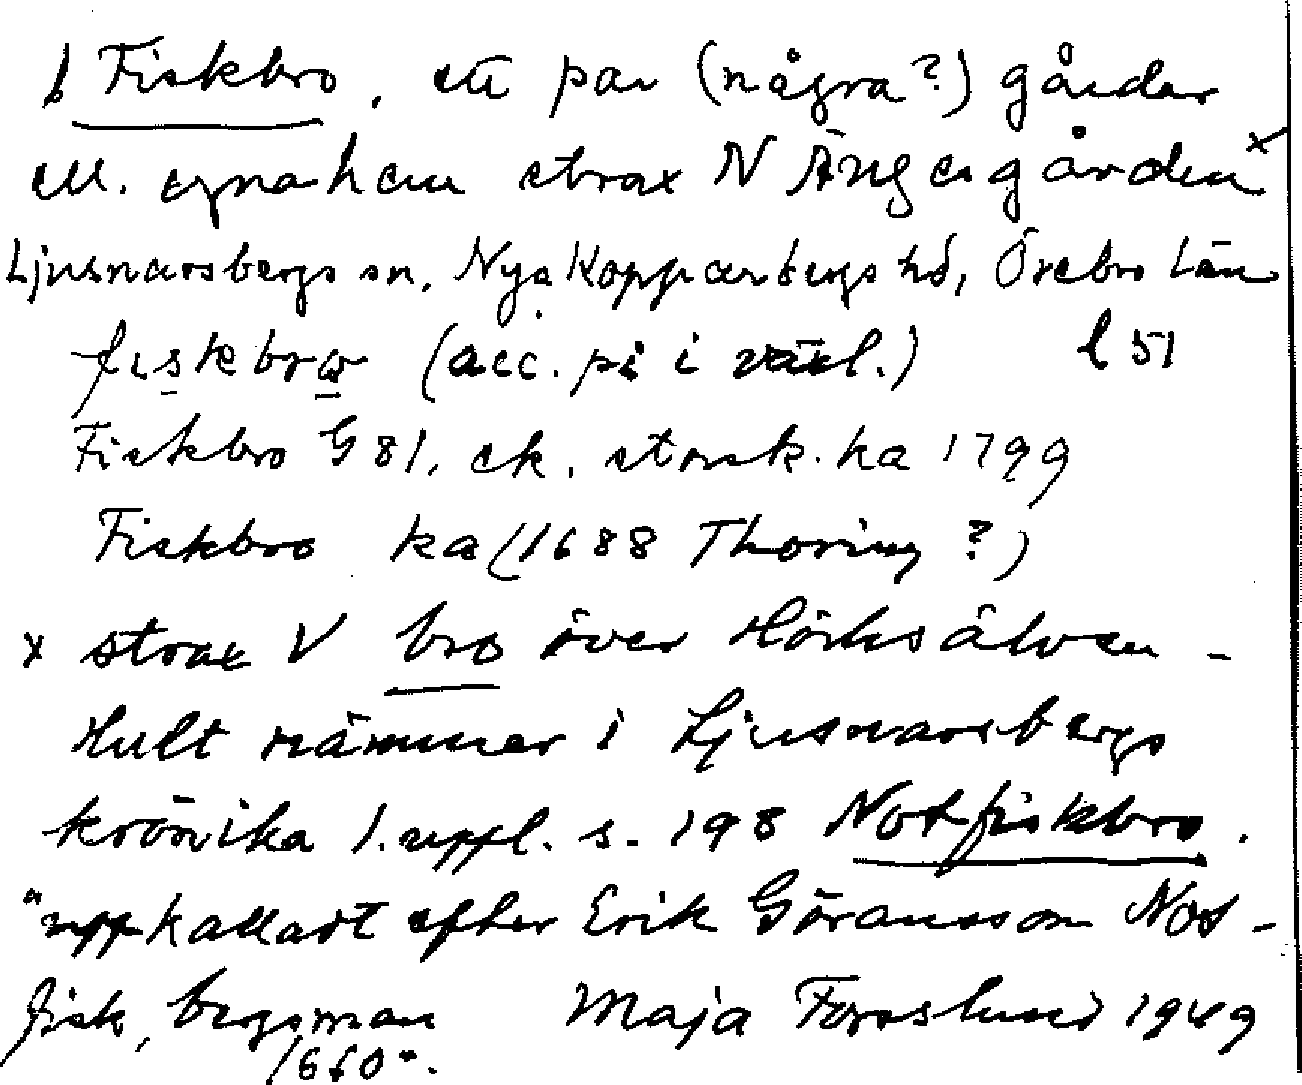 Fiskbro, ett par (några?) gårdar
ell. egnahem strax N Ängesgården x
Ljusnarsbergs sn, Nya Kopparbergs hd, Örebro län
fiskbro (acc. på i växl.) l 51
Fiskbro G 81, ek. storsk. ka 1799
Fiskbro ka (1688 Thoring?)
x strax V bro över Hörksälven -
Hult nämner i Ljusnarsbergs
krönika 1. uppl. s. 198 Notfiskbro.
"uppkallart efter Erik Göransson Not-
fisk, bergsman Maja Forslund 1949
1660".